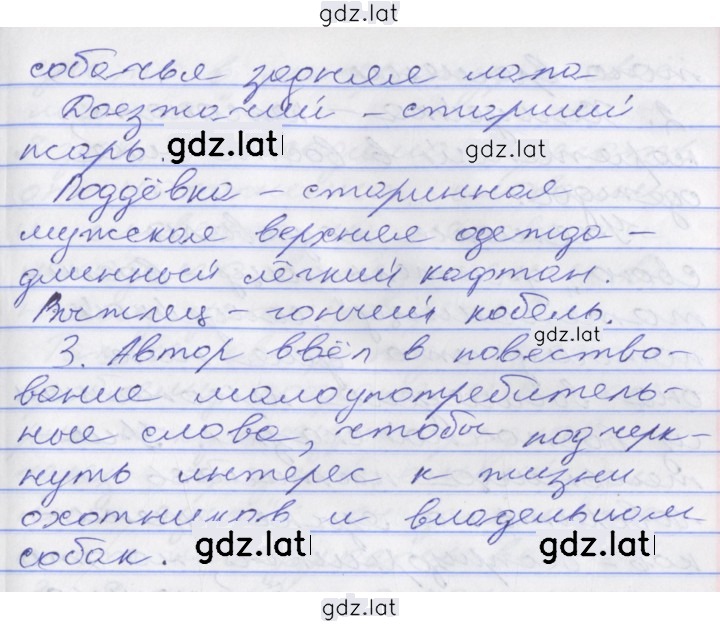 gdz.lat
собачья задняя лапа
Доезжачий – старший
псарь. gdz.lat gdz.lat
Поддёвка – старинная
мужская верхняя одежда –
длинный лёгкий кафтан.
Выжлец – гончий кобель.
gdz.lat
3. Автор ввёл в повество-
вание малоупотребитель-
ные слова, чтобы подчерк-
нуть интерес к жизни
охотников и владельцам
собак. gdz.lat gdz.lat
gdz.lat